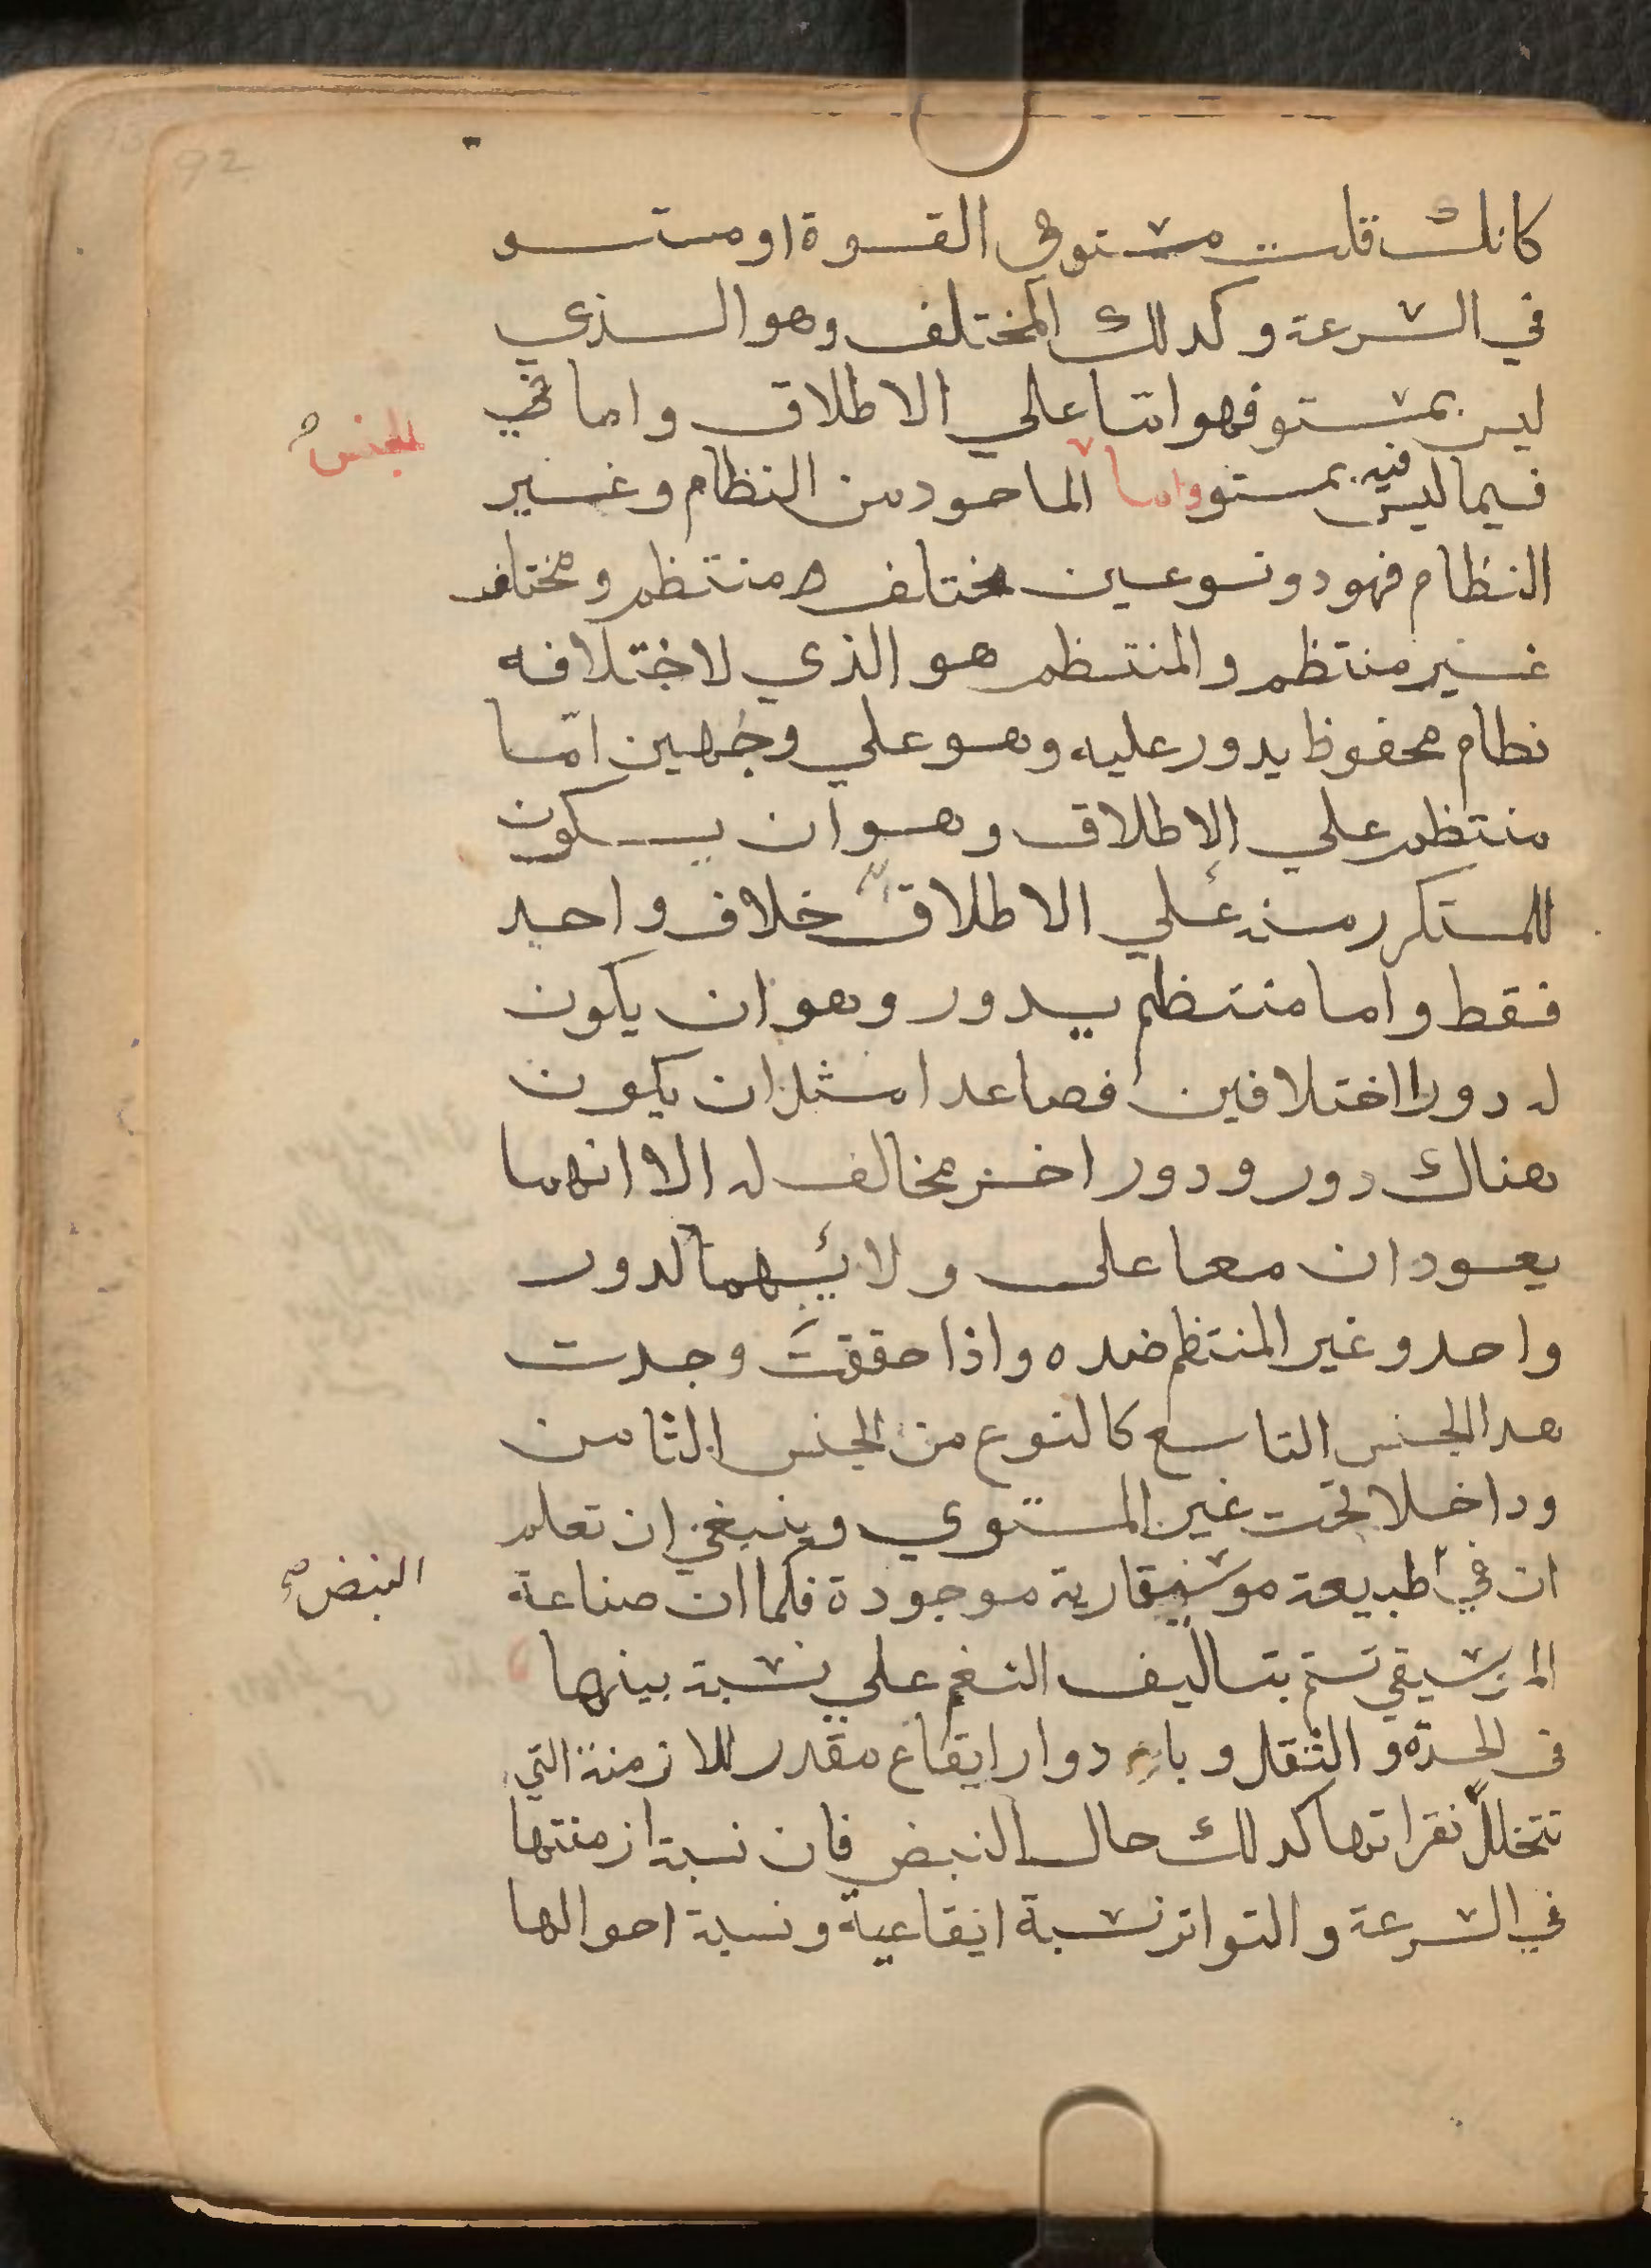 92
كانك قلت مستو في القوة او مستو
في السرعة وكدلك المختلف وهو الذي
ليس بمستو فهو اما علي الاطلاق واما في
الجنس صح
فيما ليس فيه بمستو واما الماحود من النظام وغير
النظام فهو دو نوعين مختلف منتظم ومختلف
غير منتظم والمنتظم هو الذي لاختلافه
نطام محفوظ يدور عليه وهو علي وجهين امّا
منتظم علي الاطلاق وهو ان يكون
للمتكرر منه علي الاطلاق خلاف واحد
فقط واما منتظم يدور وهو ان يكون
له دورا اختلافين فصاعدا مثل ان يكون
هناك دور ودور اخر مخالف له الا انهما
يعودان معا على ولائيهما لدور
واحد وغير المنتظم ضده واذا حققتَ وجدت
هدا الجنس التاسع كالنوع من الجنس الثامن
وداخلا تحت غير المستوي وينبغي ان تعلم
ان في طبيعة موسيقارية موجودة فكما ان صناعة
النبض صح
الموسيقي تتم بتاليف النغم علي نسبة بينها
في الحدّه والثقل وبادوار ايقاع مقدر للازمنة التي
تتخلل نقراتها كدلك حال النبض فان نسبة ازمنتها
في السرعة والتواتر نسبة ايقاعية ونسبة احوالها